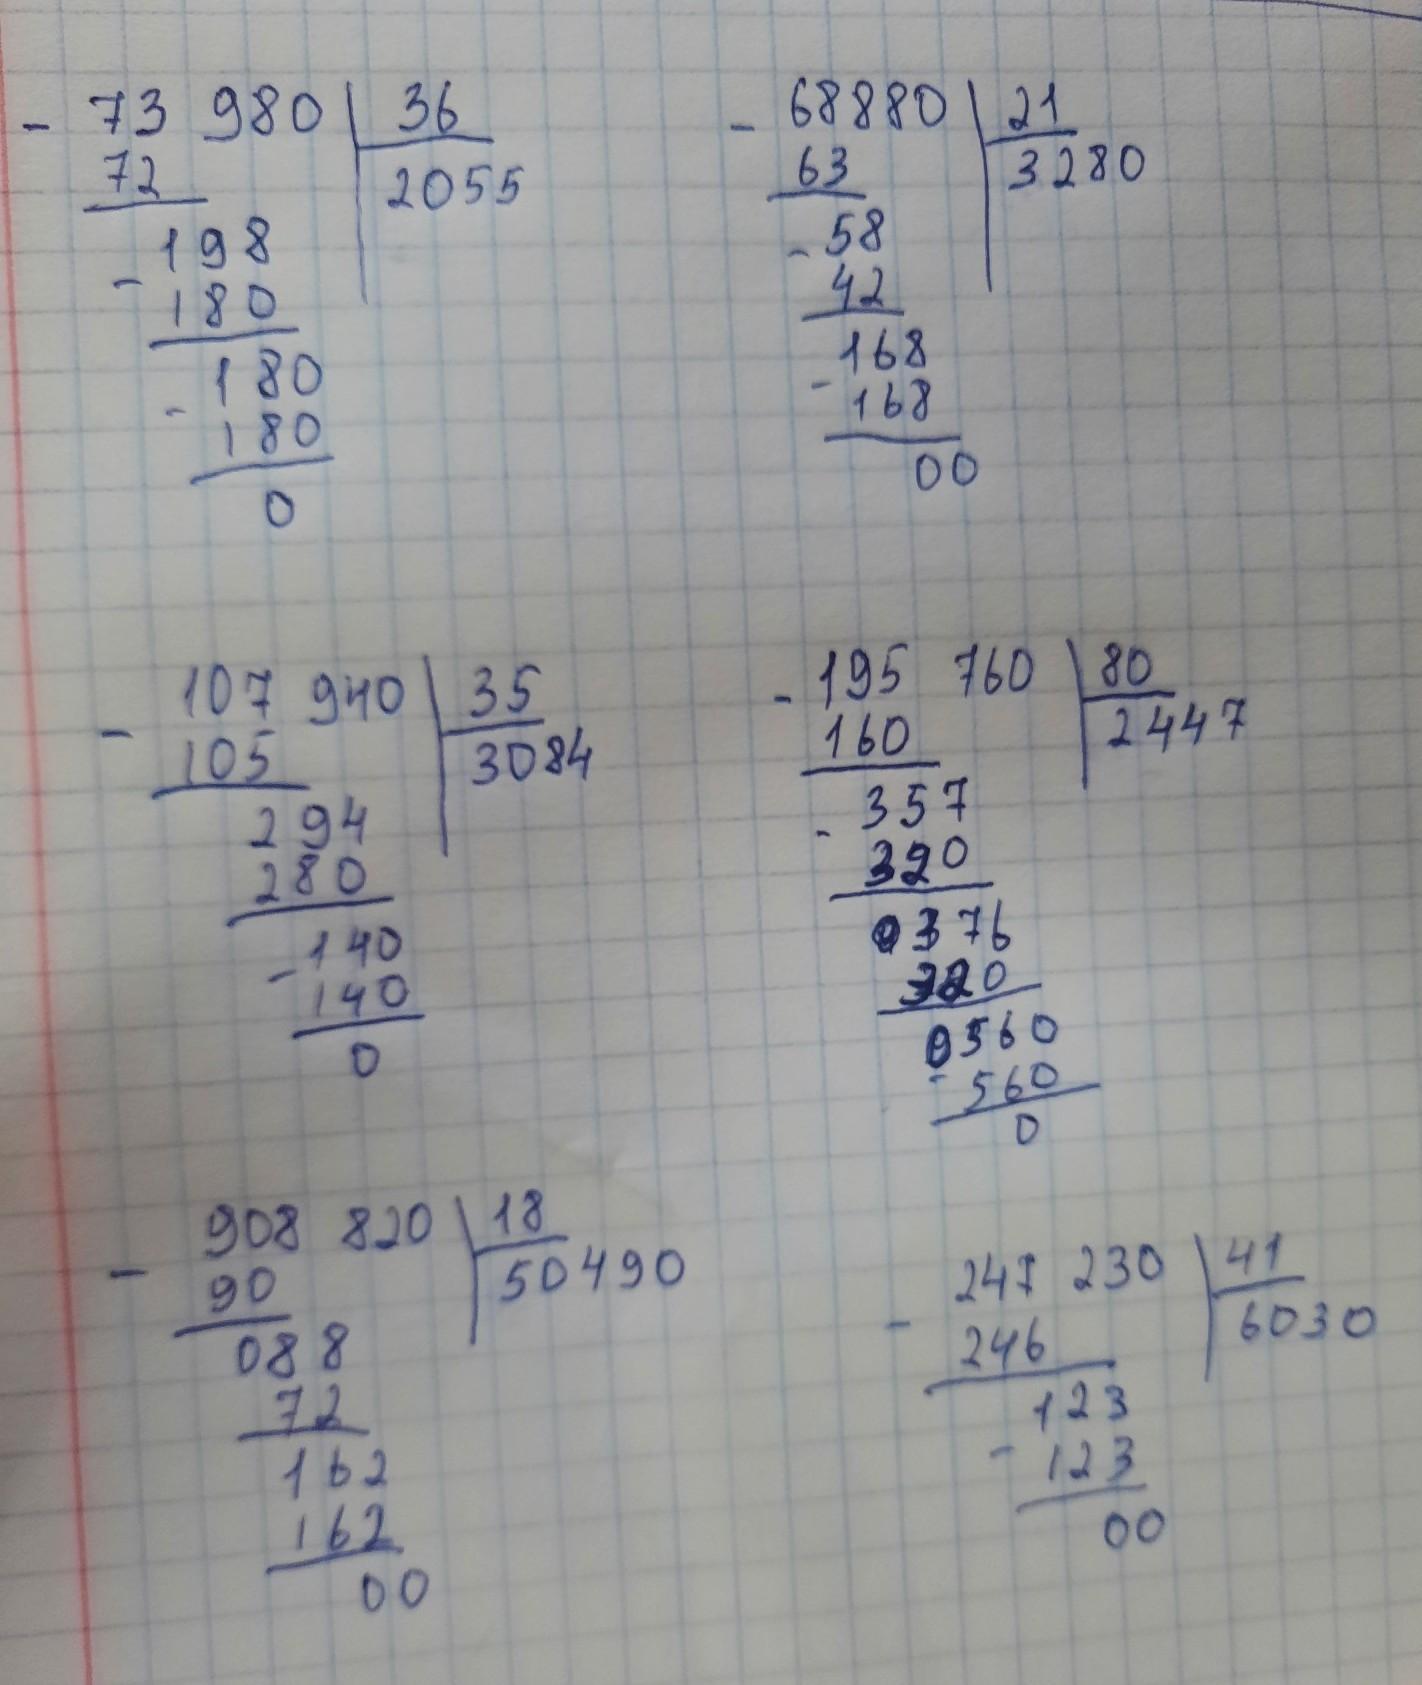 - 73 980 36
72 2055
198
- 180
180
- 180
0
- 68880 21
63 3280
- 58
42
168
- 168
00
- 107 940 35
105 3084
294
280
140
- 140
0
- 195 760 80
160 2447
- 357
320
0376
320
0560
- 560
0
- 908 820 18
90 50490
088
72
162
162
00
- 247 230 41
246 6030
123
- 123
00